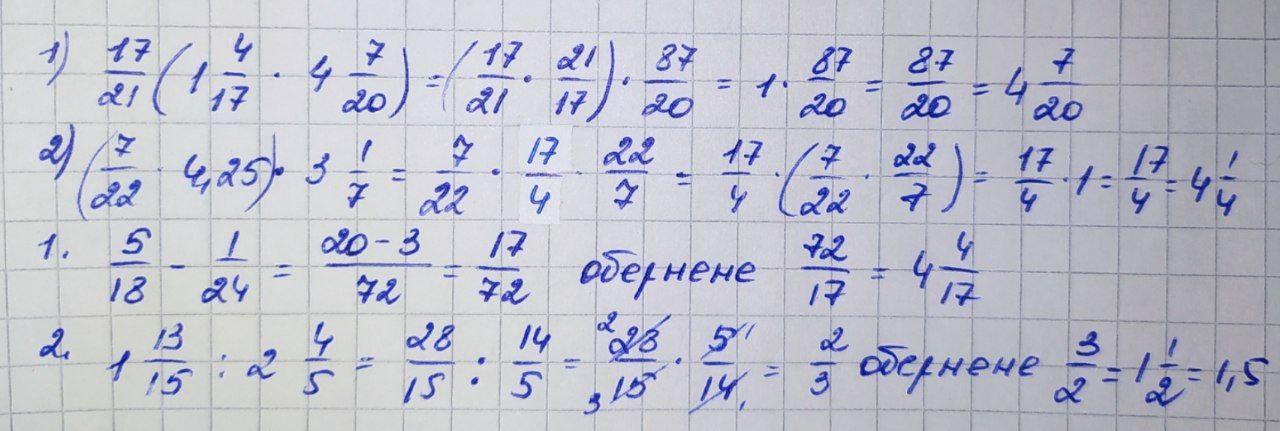 1) 17/21 (1 4/17 · 4 7/20) = (17/21 · 21/17) · 87/20 = 1 · 87/20 = 87/20 = 4 7/20
2) (7/22 · 4,25) · 3 1/7 = 7/22 · 17/4 · 22/7 = 17/4 · (7/22 · 22/7) = 17/4 · 1 = 17/4 = 4 1/4
1. 5/18 − 1/24 = (20 − 3)/72 = 17/72 обернене 72/17 = 4 4/17
2. 1 13/15 : 2 4/5 = 28/15 : 14/5 = 2 28/15 3 · 5/14 1 1 = 2/3 обернене 3/2 = 1 1/2 = 1,5